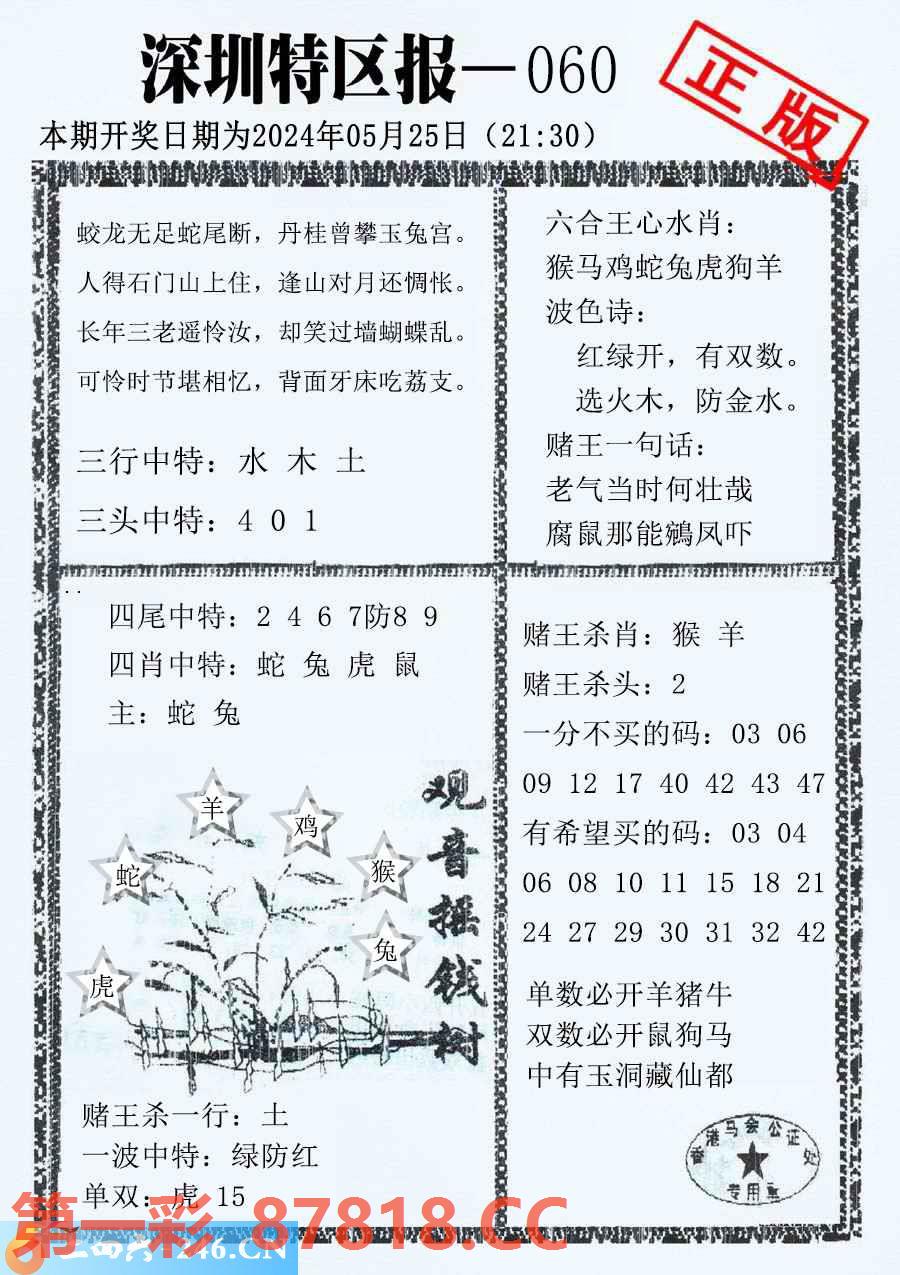 深圳特区报—060
正版
本期开奖日期为2024年05月25日（21:30）
蛟龙无足蛇尾断，丹桂曾攀玉兔宫。
人得石门山上住，逢山对月还惆怅。
长年三老遥怜汝，却笑过墙蝴蝶乱。
可怜时节堪相忆，背面牙床吃荔支。
三行中特：水 木 土
三头中特：4 0 1
六合王心水肖：
猴马鸡蛇兔虎狗羊
波色诗：
红绿开，有双数。
选火木，防金水。
赌王一句话：
老气当时何壮哉
腐鼠那能鵷凤吓
四尾中特：2 4 6 7防8 9
四肖中特：蛇 兔 虎 鼠
主：蛇 兔
羊
鸡
蛇
猴
兔
虎
观音摇钱树
赌王杀一行：土
一波中特：绿防红
单双：虎 15
赌王杀肖：猴 羊
赌王杀头：2
一分不买的码：03 06
09 12 17 40 42 43 47
有希望买的码：03 04
06 08 10 11 15 18 21
24 27 29 30 31 32 42
单数必开羊猪牛
双数必开鼠狗马
中有玉洞藏仙都
香港马会公证处
专用章
第一彩 87818.CC
246.CN